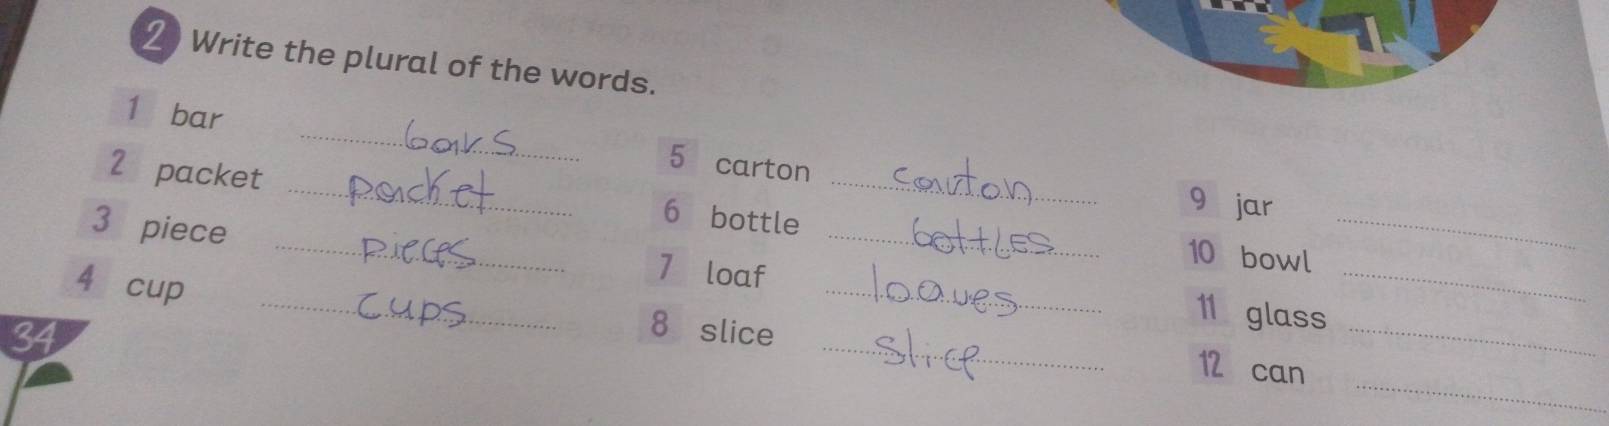 2 Write the plural of the words.
1 bar bars
2 packet packet
3 piece pieces
4 cup cups
5 carton carton
6 bottle bottles
7 loaf loaves
8 slice slice
9 jar
10 bowl
11 glass
12 can
34